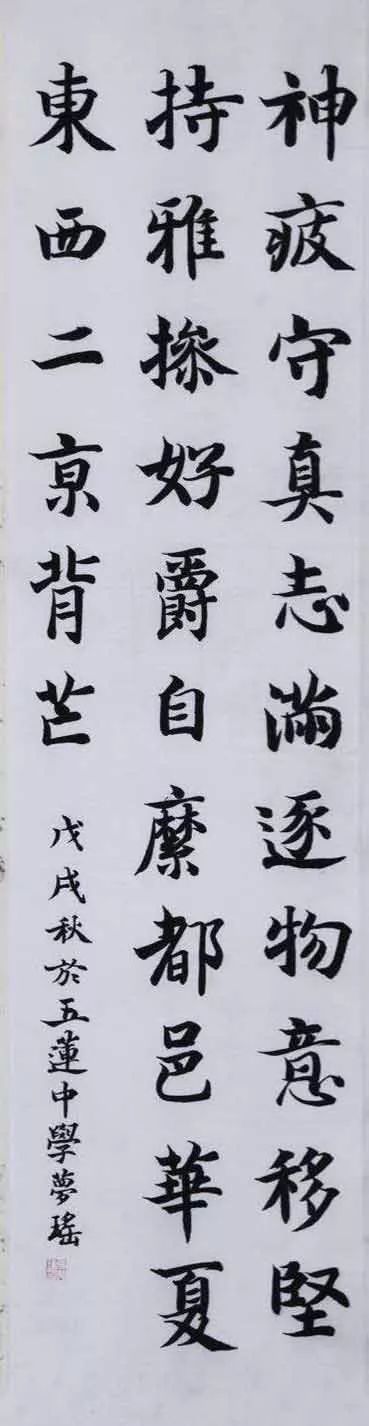 神疲守真志滿逐物意移堅
持雅操好爵自縻都邑華夏
東西二京背芒
戊戌秋於五蓮中學夢瑤